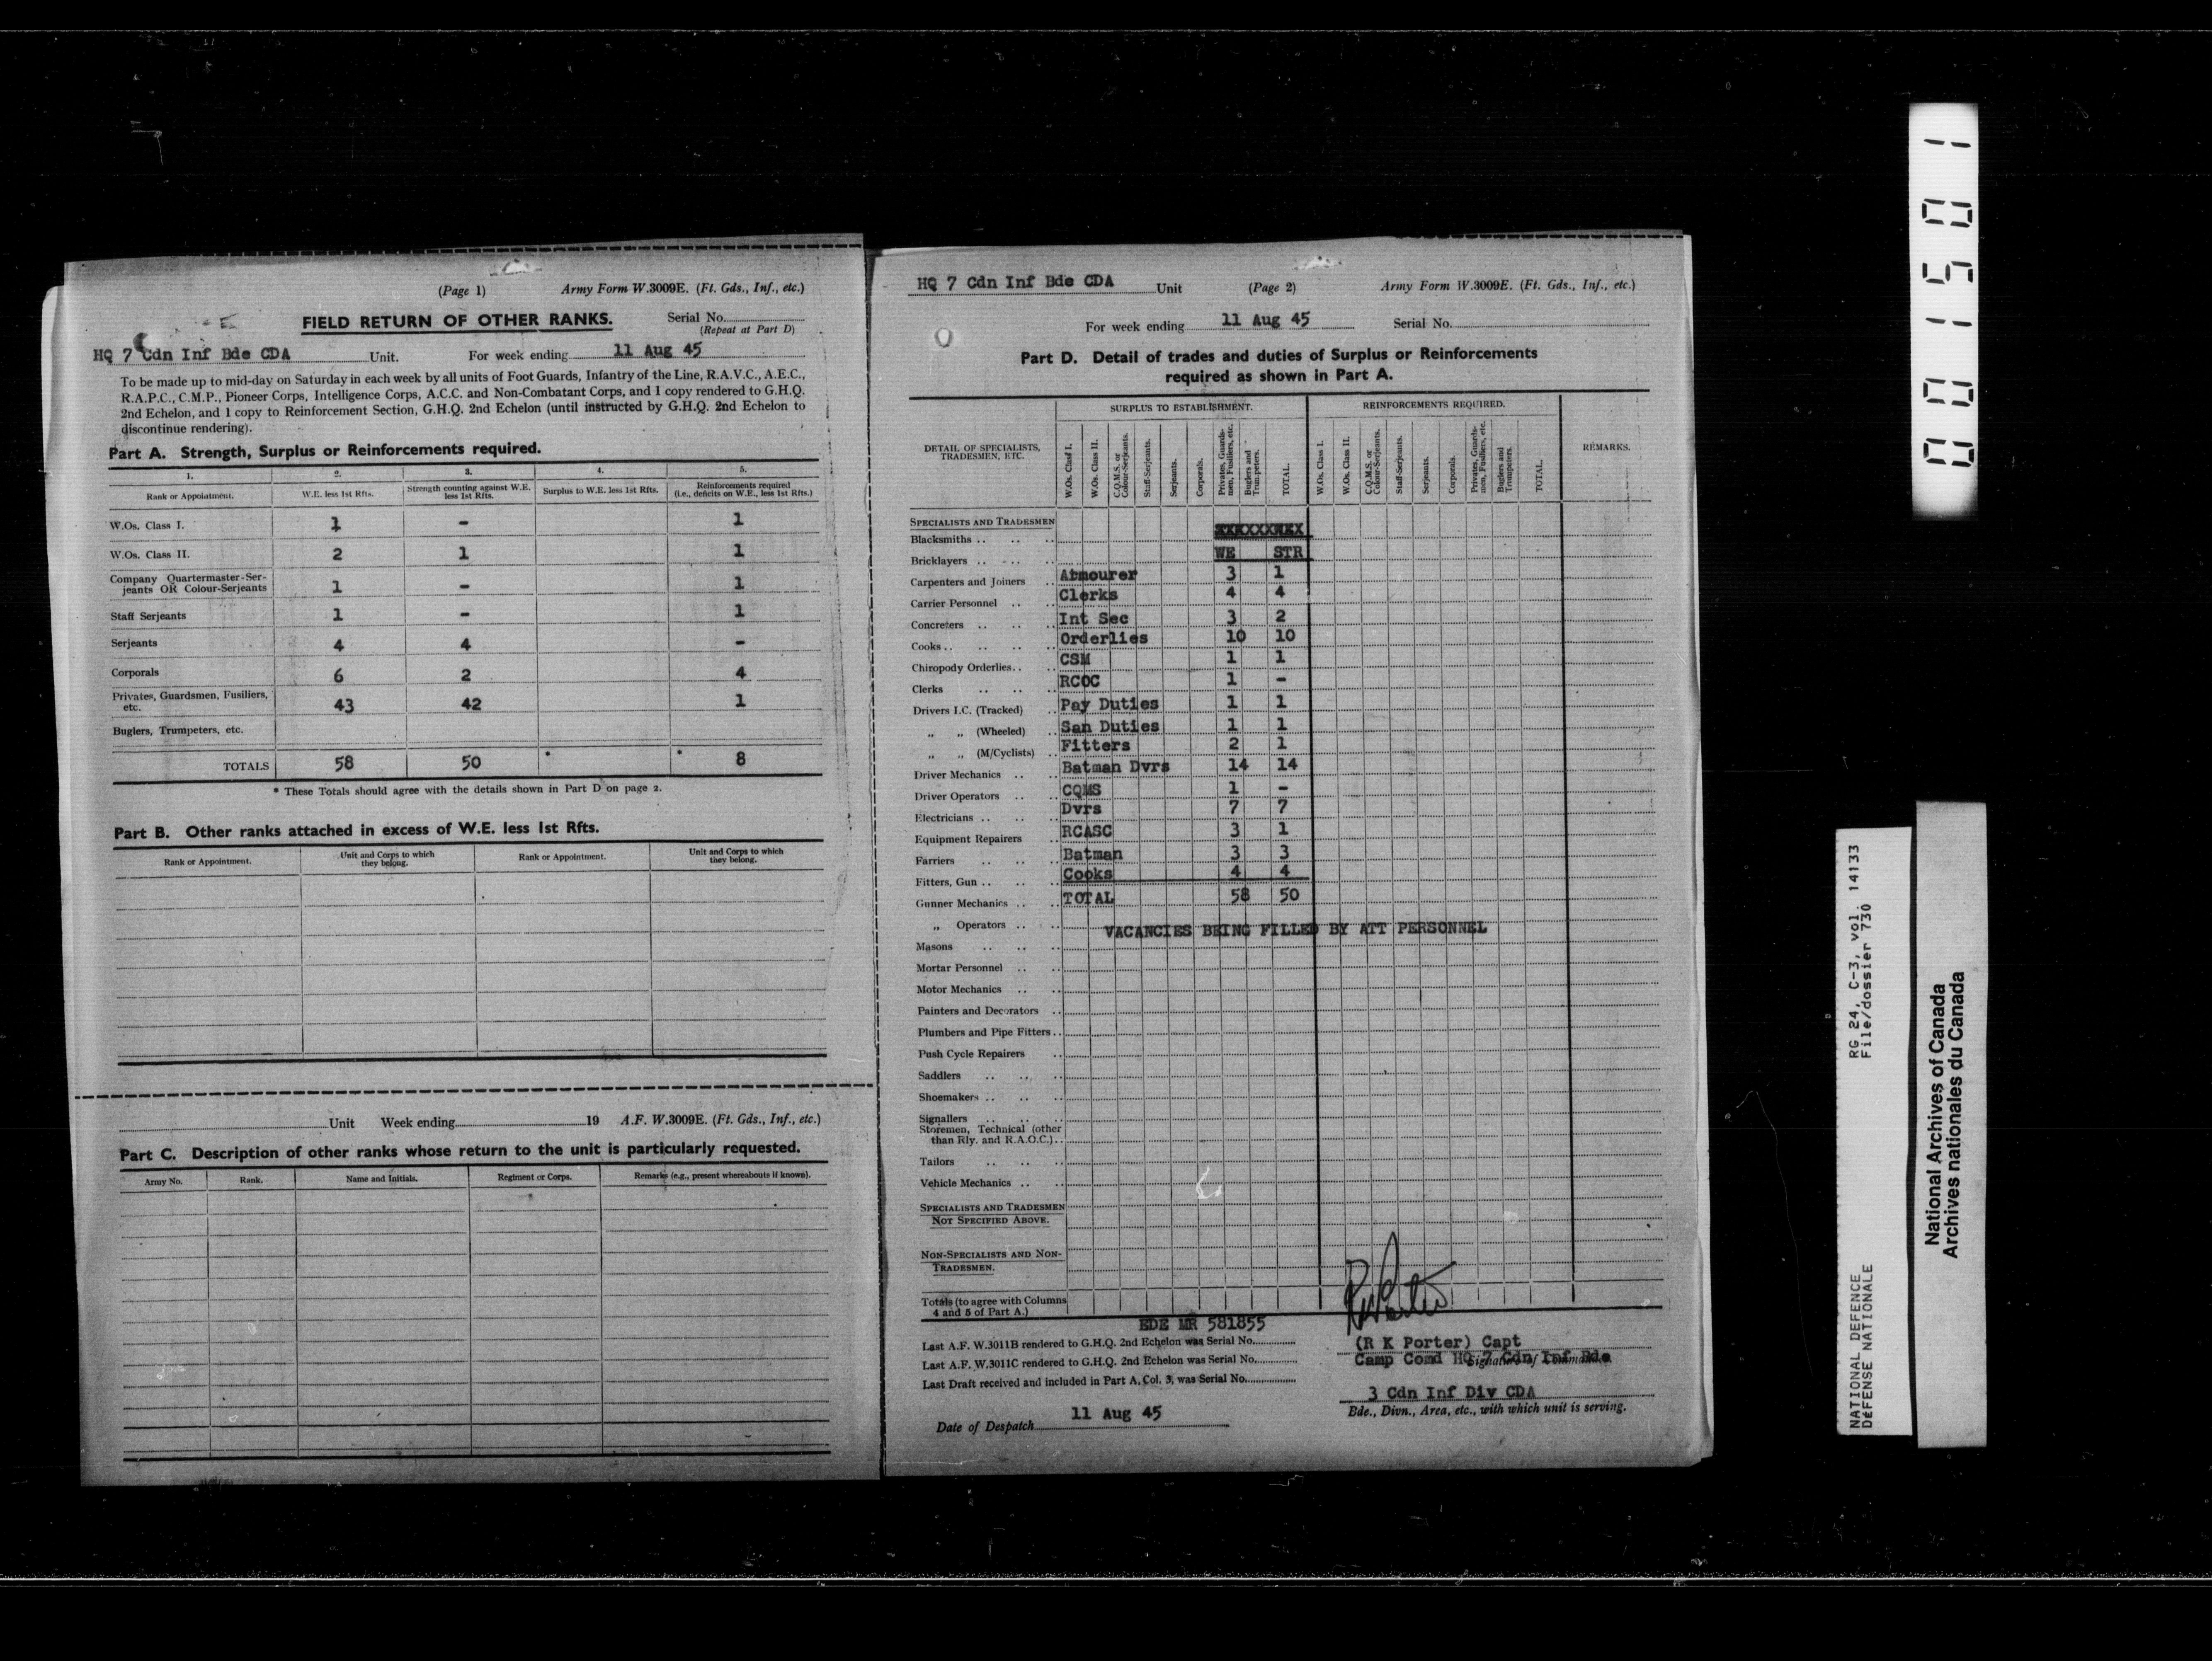 (Page 1) Army Form W.3009E. (Ft. Gds., Inf., etc.)
FIELD RETURN OF OTHER RANKS. Serial No.
(Repeat at Part D)
HQ 7 Cdn Inf Bde CDA Unit. For week ending 11 Aug 45
To be made up to mid-day on Saturday in each week by all units of Foot Guards, Infantry of the Line, R.A.V.C., A.E.C.,
R.A.P.C., C.M.P., Pioneer Corps, Intelligence Corps, A.C.C. and Non-Combatant Corps, and 1 copy rendered to G.H.Q.
2nd Echelon, and 1 copy to Reinforcement Section, G.H.Q. 2nd Echelon (until instructed by G.H.Q. 2nd Echelon to
discontinue rendering).
Part A. Strength, Surplus or Reinforcements required.
1. 2. 3. 4. 5.
Rank or Appointment. W.E. less 1st Rfts. Strength counting against W.E. less 1st Rfts. Surplus to W.E. less 1st Rfts. Reinforcements required (i.e., deficits on W.E., less 1st Rfts.)
W.Os. Class I. 1 - 1
W.Os. Class II. 2 1 1
Company Quartermaster-Ser-
jeants OR Colour-Serjeants 1 - 1
Staff Serjeants 1 - 1
Serjeants 4 4 -
Corporals 6 2 4
Privates, Guardsmen, Fusiliers,
etc. 43 42 1
Buglers, Trumpeters, etc.
TOTALS 58 50 * * 8
* These Totals should agree with the details shown in Part D on page 2.
Part B. Other ranks attached in excess of W.E. less 1st Rfts.
Rank or Appointment. Unit and Corps to which they belong. Rank or Appointment. Unit and Corps to which they belong.
Unit Week ending 19 A.F. W.3009E. (Ft. Gds., Inf., etc.)
Part C. Description of other ranks whose return to the unit is particularly requested.
Army No. Rank. Name and Initials. Regiment or Corps. Remarks (e.g., present whereabouts if known).
HQ 7 Cdn Inf Bde CDA Unit (Page 2) Army Form W.3009E. (Ft. Gds., Inf., etc.)
For week ending 11 Aug 45 Serial No.
Part D. Detail of trades and duties of Surplus or Reinforcements
required as shown in Part A.
DETAIL OF SPECIALISTS, TRADESMEN, ETC. SURPLUS TO ESTABLISHMENT. REINFORCEMENTS REQUIRED. REMARKS.
W.Os. Class I. W.Os. Class II. C.Q.M.S. or Colour-Serjeants. Staff-Serjeants. Serjeants. Corporals. Privates, Guardsmen, Fusiliers, etc. Buglers and Trumpeters. TOTAL. W.Os. Class I. W.Os. Class II. C.Q.M.S. or Colour-Serjeants. Staff-Serjeants. Serjeants. Corporals. Privates, Guardsmen, Fusiliers, etc. Buglers and Trumpeters. TOTAL.
SPECIALISTS AND TRADESMEN
Blacksmiths
WE STR
Bricklayers
Atmourer 3 1
Carpenters and Joiners
Clerks 4 4
Carrier Personnel
Int Sec 3 2
Concreters
Orderlies 10 10
Cooks
CSM 1 1
Chiropody Orderlies
RCOC 1 -
Clerks
Pay Duties 1 1
Drivers I.C. (Tracked)
San Duties 1 1
„ „ (Wheeled)
Fitters 2 1
„ „ (M/Cyclists)
Batman Dvrs 14 14
Driver Mechanics
CQMS 1 -
Driver Operators
Dvrs 7 7
Electricians
RCASC 3 1
Equipment Repairers
Batman 3 3
Farriers
Cooks 4 4
Fitters, Gun
TOTAL 58 50
Gunner Mechanics
„ Operators
VACANCIES BEING FILLED BY ATT PERSONNEL
Masons
Mortar Personnel
Motor Mechanics
Painters and Decorators
Plumbers and Pipe Fitters
Push Cycle Repairers
Saddlers
Shoemakers
Signallers
Storemen, Technical (other
than Rly. and R.A.O.C.)
Tailors
Vehicle Mechanics
SPECIALISTS AND TRADESMEN
NOT SPECIFIED ABOVE.
NON-SPECIALISTS AND NON-
TRADESMEN.
Totals (to agree with Columns
4 and 5 of Part A.)
EDE MR 581855
Last A.F. W.3011B rendered to G.H.Q. 2nd Echelon was Serial No.
Last A.F. W.3011C rendered to G.H.Q. 2nd Echelon was Serial No.
Last Draft received and included in Part A, Col. 3, was Serial No.
(R K Porter) Capt
Camp Comd HQ 7 Cdn Inf Bde
3 Cdn Inf Div CDA
Bde., Divn., Area, etc., with which unit is serving.
Date of Despatch 11 Aug 45
001501
RG 24, C-3, vol. 14133
File/dossier 730
NATIONAL DEFENCE
DÉFENSE NATIONALE
National Archives of Canada
Archives nationales du Canada